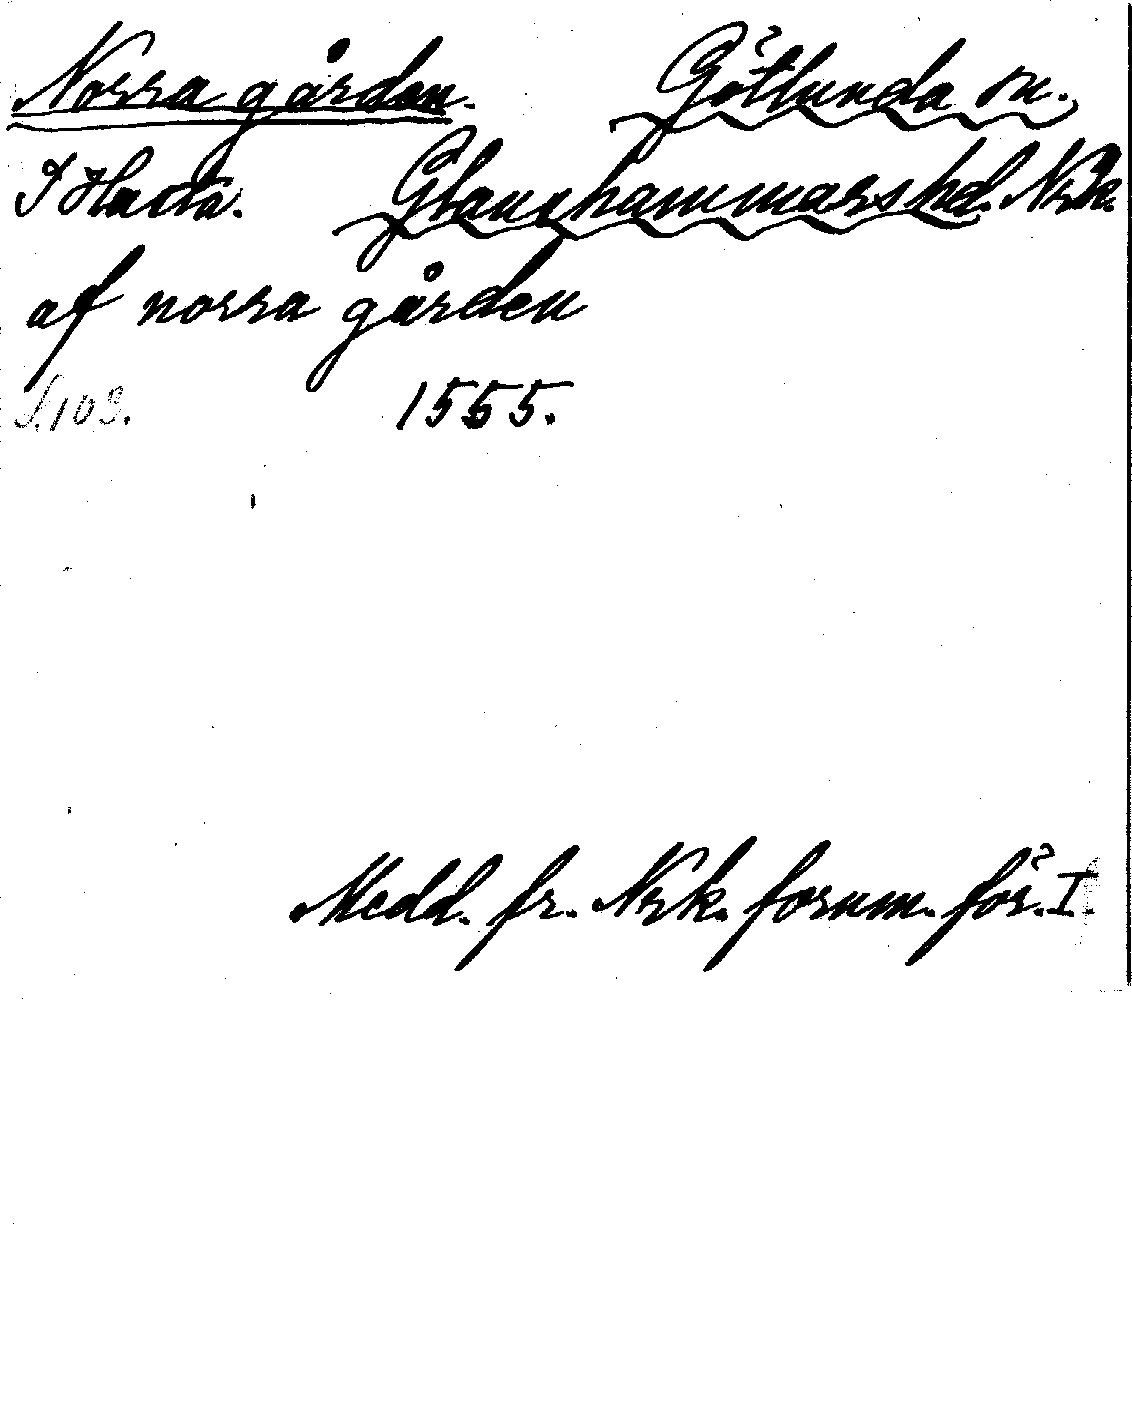 Norra gården. Götlunda sn.
I Hasta. Glanshammars hd. Nrk.
af norra gården
S. 103. 1555.
Medd. fr. Nrk. fornm. för. I.